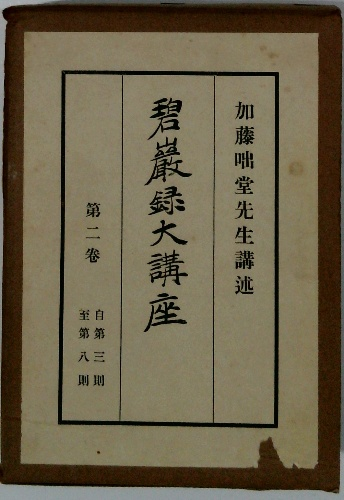 加藤咄堂先生講述
碧巖録大講座
第二卷
自第三則
至第八則